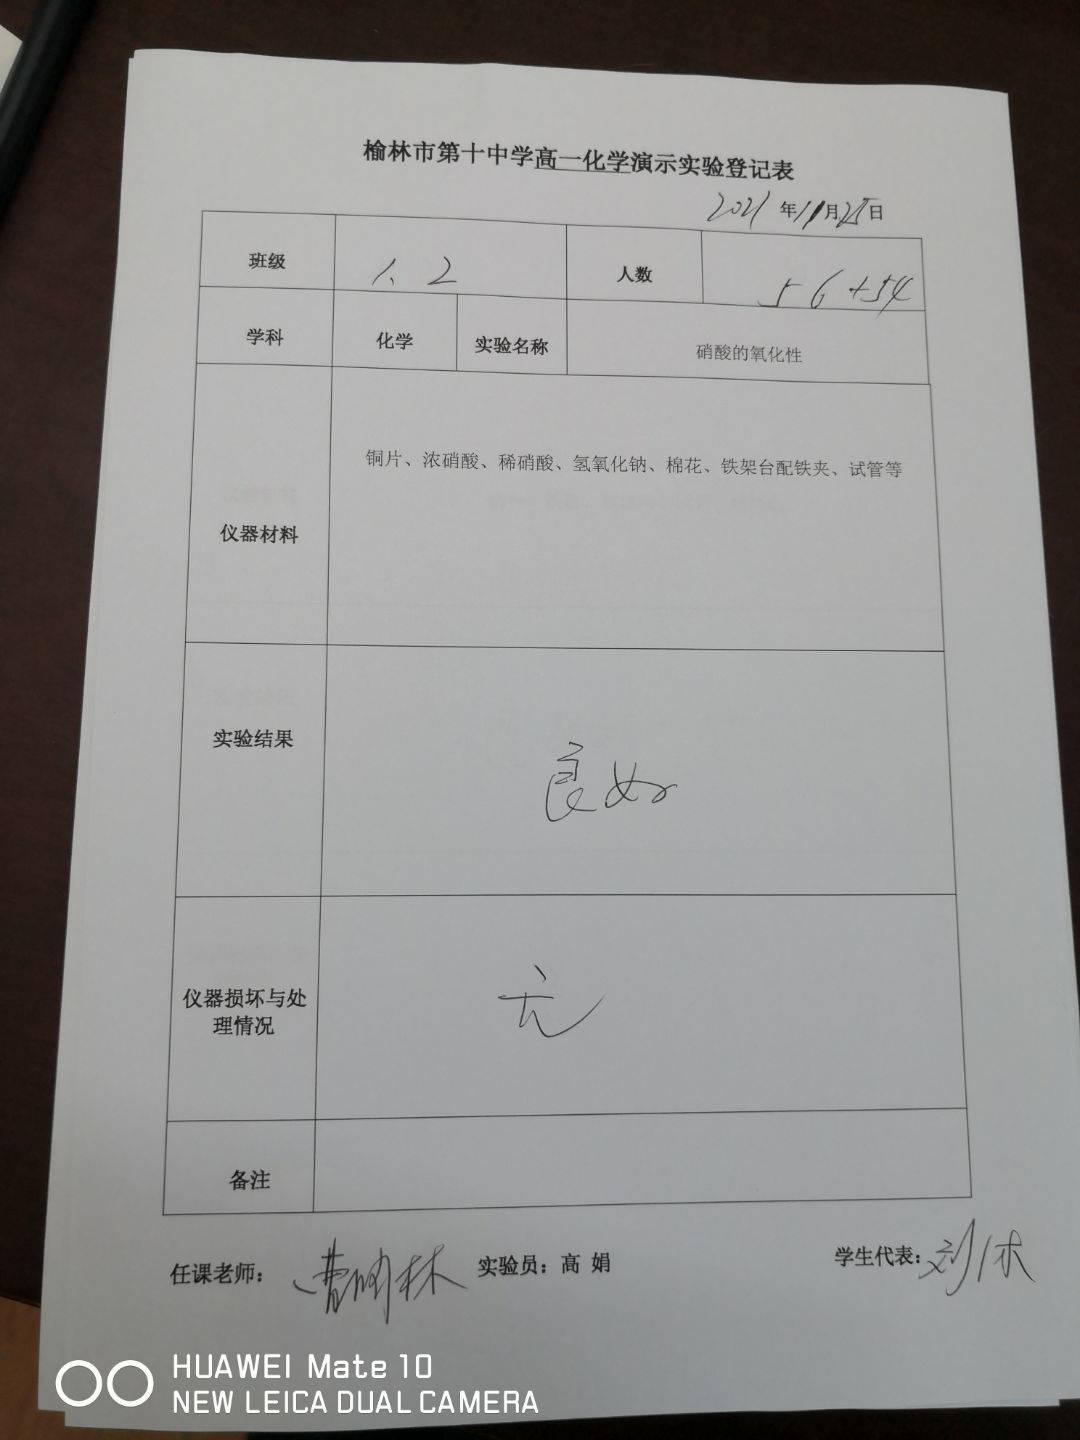 榆林市第十中学高一化学演示实验登记表
2021年11月25日
班级 1、2 人数 56+54
学科 化学 实验名称 硝酸的氧化性
仪器材料 铜片、浓硝酸、稀硝酸、氢氧化钠、棉花、铁架台配铁夹、试管等
实验结果 良好
仪器损坏与处
理情况
无
备注
任课老师： 实验员：高娟 学生代表：
HUAWEI Mate 10
NEW LEICA DUAL CAMERA